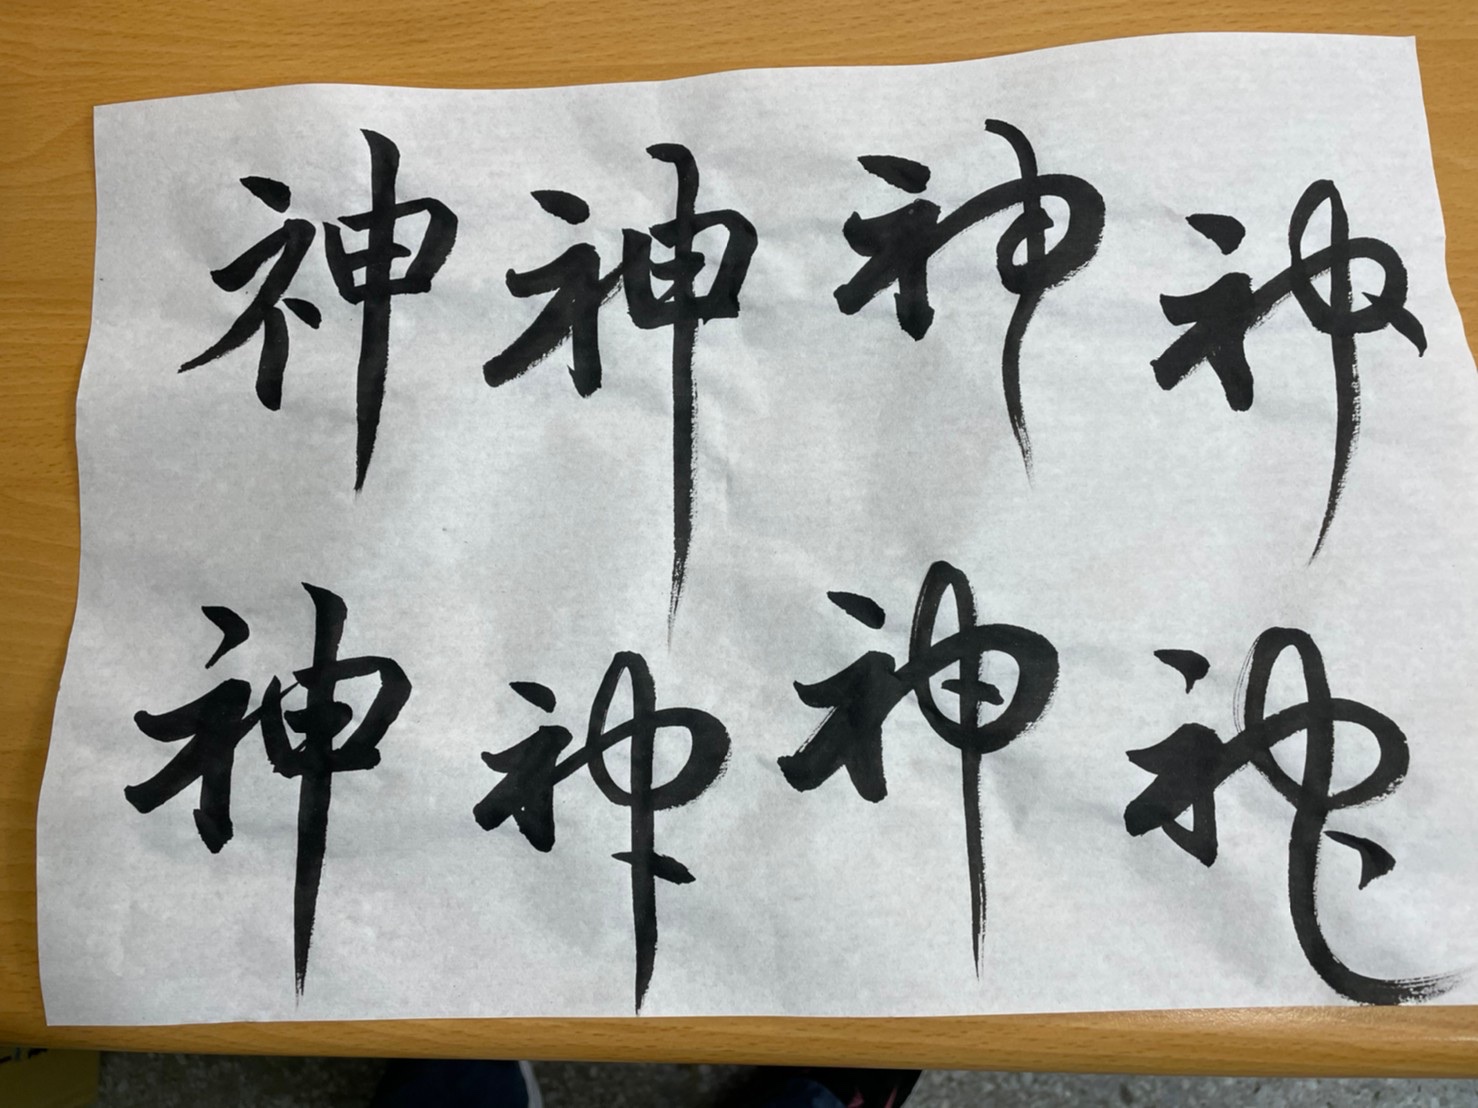 神神神神
神神神神